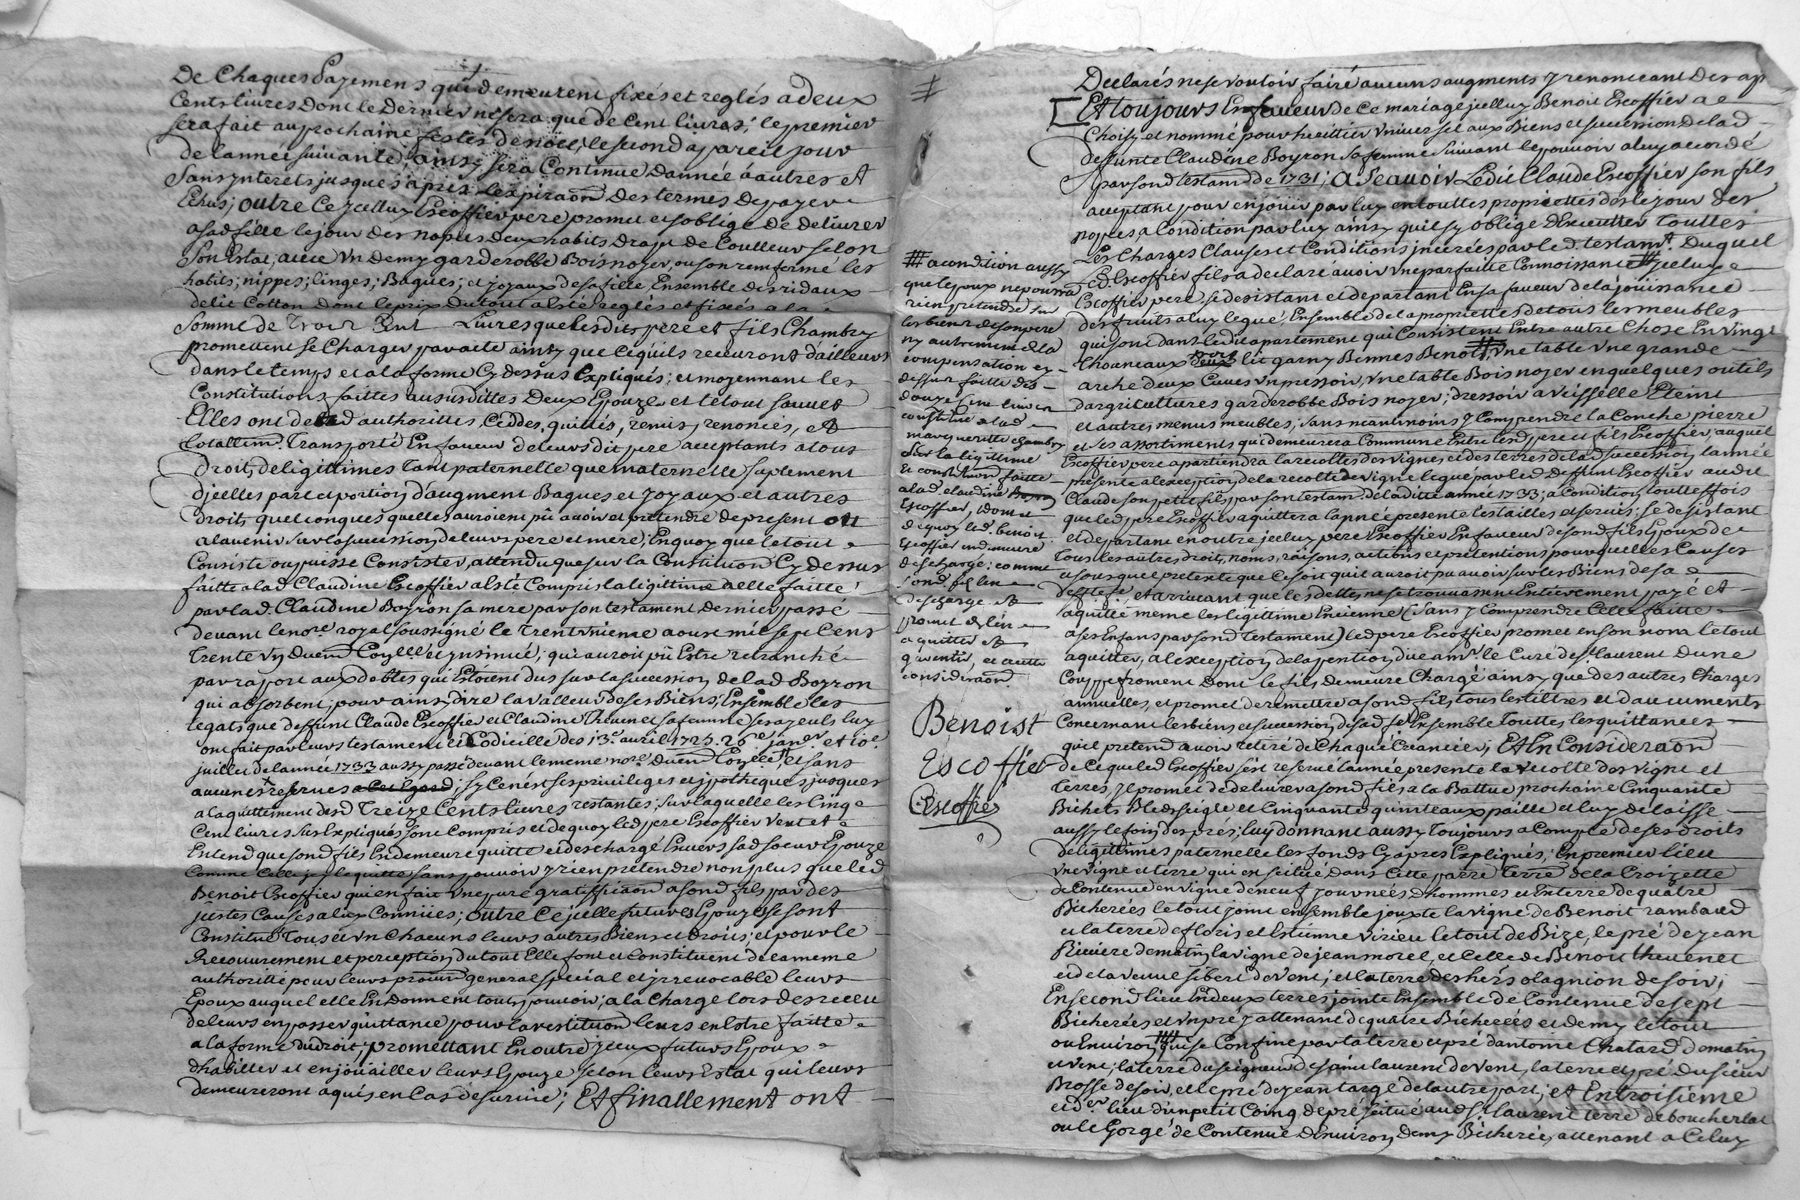 De Chaques Payemens qui demeurent fixés et reglés a deux
Cents livres Dont le Dernier ne sera que de Cent livres; le premier
sera fait au prochaine festes de noel, le second a pareil jour
de lannée suivante, ainsy sera Continué dannée à autres et
sans ynterets jusques apres lexpiraõn des termes de payer
Echus; outre Ce jcelluy Escoffier pere promet et soblige de delivrer
a sad fille le jour des nopces deux habits Drap de Coulleur selon
son Estat, avec un demy garderobbe Bois noyer, ou son renfermé les
habits; nippes; linges; Bagues; et joyaux de sa fille Ensemble des ridaux
de lit Cotton dont le prix du tout a esté reglés et fixés a la
somme de Trois Cent Livres que lesdits pere et fils Chambry
promettent se Charger par acte ainsy que Ce quils recevront dailleurs
dans le temps et a la forme Cy dessus Expliqués; et moyennant les
Constitutions faittes aux susdittes Deux Epouzes et le tout sauves
Elles ont de lad authorittés, Ceddes, quittés, remis, renoncés, et
totallemt Transporté En faveur de leurs dit pere acceptants a tous
Droits de ligittimes tant paternelle que maternelle suplement
Djcelles part et portion d'augment Bagues et joyaux et autres
droits quelconques quelles auroient pû avoir et pretendre de present ou
a lavenir sur la succession de leurs pere et mere; En quoy que le tout
Consiste ou puisse Consister, attendu que sur la Constituon Cy dessus
faitte a lad Claudine Escoffier a esté Compris la ligittime a elle faitte
par lad. Claudine Boyron sa mere par son testament dernier passé
devant le nore royal soussigné le Trentuniéme aoust mil sept Cens
trente un duemt Coyllé et ynsinué; qui auroit pû Estre retranché
par rapport aux debtes qui Estoient dus sur la succession de lad Boyron
qui absorbent; pour ainsy dire la valleur de ses Biens, Ensemble les
legats que deffunt Claude Escoffier et Claudine Thevenet sa femme ses ayeuls luy
ont fait par leurs testament et Codicille des 13e avril 1727. 26e janer et 10e
juillet de lannée 1733 aussy passé devant le meme nore duemt Coyllé, et sans
aucunes reserves ; sy Ce nést ses privileges et jpotheques jusques
a laquittement desd Treize Cents livres restantes; sur laquelle les Cinq
Cent livres sus Expliqués sont Compris et de quoy led pere Escoffier veut et
Entend que sond fils En demeure quitte et deschargé Envers sad soeur Epouze
Comme Celle cy len quitte sans pouvoir y rien pretendre non plus que led
Benoit Escoffier qui en fait une pure gratiffication a sond fils par des
justes Causes a luy Connües; outre Ce jcelle futures Epouzes se sont
Constitué Tous et un Chacuns leurs autres Biens et Droits; et pour le
Recouvrement et perception du tout Elle font et Constituent de la meme
authoritté pour leurs procur general special et jrrevocable leurs
Epoux auquel elle En donnent tout pouvoir; a la Charge lors des receu
de leurs en passer quittance pour la restituon leurs en Estre faitte
a la forme du droit; promettant En outre jceux futurs Epoux
dhabiller et enjouailler leurs Epouze selon leurs Estat qui leurs
demeureront aquis en Cas de survie; Et finallement ont
Declarés ne se vouloir faire aucuns augments y renonceant Des ap
Et toujours En faveur de Ce mariage jcelluy Benoit Escoffier a
Choisy et nommé pour heritier universel aux Biens et succession de lad
deffunte Claudine Boyron sa femme suivant le pouvoir a luy accordé
par sond testamt de 1731; A Scavoir Ledit Claude Escoffier son fils
acceptant pour en jouir par luy en touttes proprietés dés le jour des
nopces a Condition par luy ainsy quil sy oblige D'Executter touttes
Les Charges Clauses et Conditions jnserées par led. testamt. Duquel
led. Escoffier fils a declaré avoir une parfaitte Connoissance jceluy
Escoffier pere se desistant et departant En sa faveur de la jouissance
des fruits a luy legué, Ensemble de la proprietté de tous les meubles
qui sont dans ledit apartement qui Consistent Entre autre Chose En vingt
thonneaux lit garny Bennes Benots, une table une grande
arche deux Cuves un pressoir, une table Bois noyer en quelques outils
dargricultures garderobbe Bois noyer; dressoir a vésselle Eteint
et autres menus meubles; sans neantmoins y Comprendre la Conche pierre
et ses assortiments qui demeurera Commune Entre lesd pere et fils Escoffier; auquel
Escoffier pere apartiendra la recoltes des vignes et des terres de lad succession lannée
présente a lexception de la recolte de vigne legué par led deffunt Escoffier audit
Claude son petit fils par son testam de ladite année 1733; a Condition touttesfois
que led pere Escoffier aquittera lannée presente les tailles et servis; se desistant
et departant en outre jceluy pere Escoffier En faveur de sond fils Epoux de
tous les autres droits, noms, raisons, actions et pretentions pour quelles Causes
et sous quel pretexte que Ce soit quil auroit pu avoir sur les Biens de sa
deffte fe, et arrivant que les dettes ne se trouvassent Entierement payé et
aquitté meme les ligittime Encienne (sans y Comprendre Celle faitte
a ses Enfans par sond testament) led pere Escoffier promet en son nom le tout
aquitter, a lexception de la pention due a mr. le Curé de st laurent dune
Couppe froment dont le fils demeure Chargé ainsy que des autres Charges
annuelles, et promet de remettre a sond fils tous les tittres et documents
Concernant les biens et succession de sad fe Ensemble Touttes les quittances
quil pretend avoir retiré de Chaque Creancier; Et En Consideraõn
de Ce que led Escoffier s'ést reservé lannée presente la recolte des vigne et
terres, jl promet de délivrer a sond fils a la Battue prochaine Cinquante
Bichets Bled seigle et Cinquante quinteaux paille et luy delaisse
aussy le foin des prés; luy donnant aussy toujours a Compte de ses droits
de ligittimes paternelle les fonds Cy apres Expliqués; En premier lieu
une vigne et terre qui en scituée dans Cette parre terre de la Croizette
de Contenue en vigne de neuf journées dhommes et En terre de quatre
Bicherées le tout joint ensemble jouxte la vigne de Benoit rambaud
et la terre de floris et Estienne virieu le tout de Bize, le pré de jean
Riviere de matin la vigne de jean morel, et Celle de Benoit thevenet
et de la veuve sibert de vent; et la terre des hérs olagnion de soir;
En second lieu En deux terres jointe Ensemble de Contenue de sept
Bicherées et un pré y attenant de quatre Bicherées et demy le tout
ou Environ, qui se Confine par la terre et pré dantoine Chatard de matin
et vent; la terre du seigneur de saint laurent de vent, la terre et pré du sieur
Brosse de soir, et le pré de jean targe de lautre part; et En troisiéme
et der lieu d'un petit Coing de pré scitué aud st. laurent terre de boucherlat
ou le Gorgé de Contenue d'Environ demy Bicherée, attenant a Celuy
a condition aussy
que lepoux ne pourra
rien pretendre sur
les biens de son pere
ny autrement de la
compensation cy
dessus faitte des
douze cent livres
constitué a lad
margueritte chambry
sur la ligittime
et constitution faitte
a lad. claudine
Escoffier, dont et
de quoy led. benoit
Escoffier en demeure
deschargé; comme
sond. fils len
descharge et
promet de len
aquitter et
guarentir, et cette
consideraõn
Benoist
Escoffier
C. Escoffier